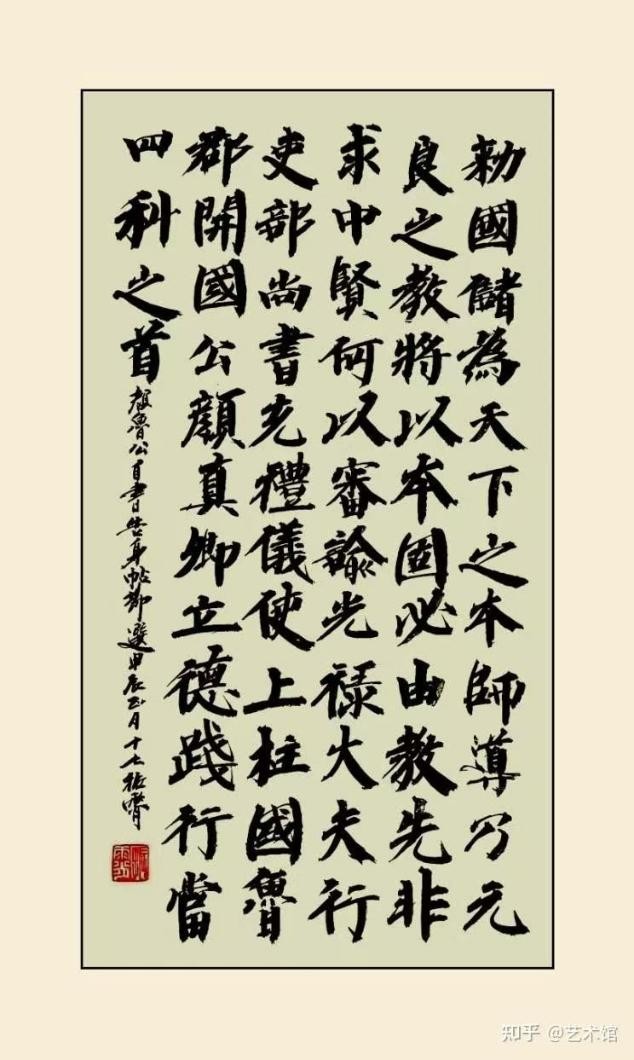 勑國儲為天下之本師導乃元
良之教將以本固必由教先非
求中賢何以審諭光禄大夫行
吏部尚書充禮儀使上柱國魯
郡開國公顏真卿立德踐行當
四科之首
顏魯公自書告身帖節選甲辰正月十七
知乎 @艺术馆